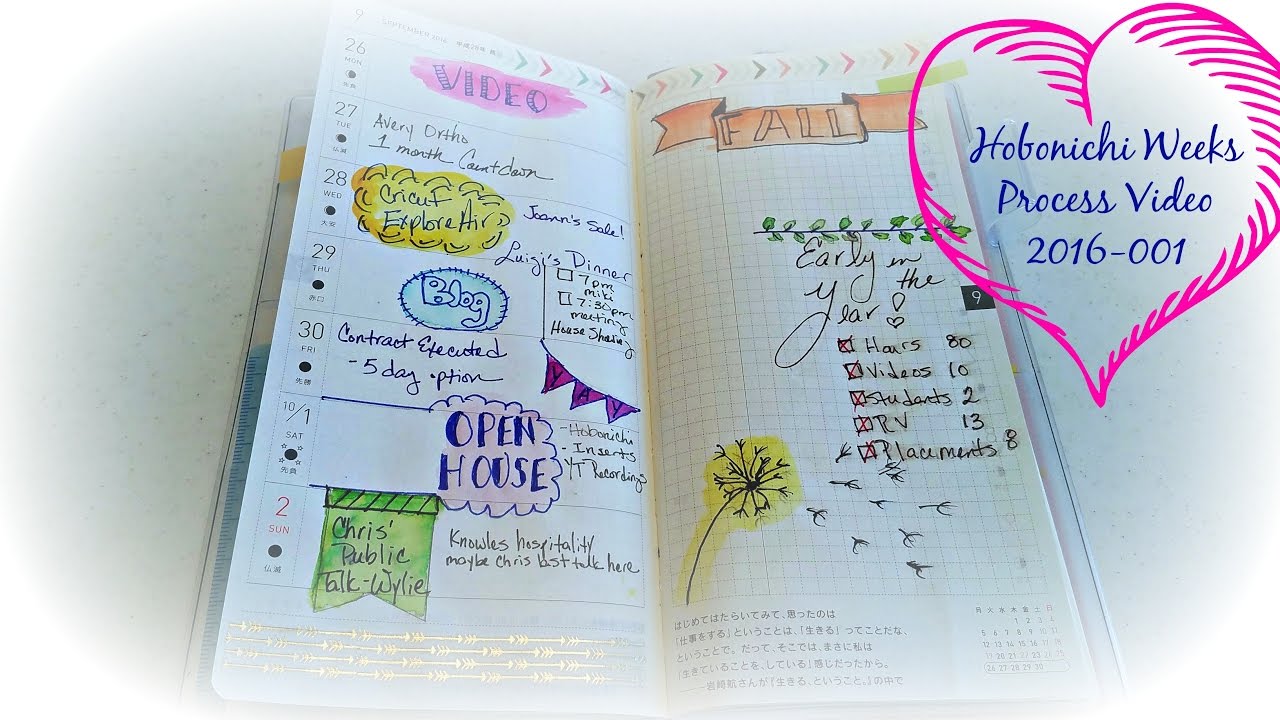 9 SEPTEMBER 2016 平成28年
26
MON
先負
VIDEO
27
TUE
仏滅
Avery Ortho
1 month Countdown
28
WED
大安
Cricut
Explore Air
Joann's Sale!
29
THU
赤口
Luigi's Dinner
Blog
7pm
miki
7:30pm
meeting
House Showing
30
FRI
先勝
Contract Executed
- 5 day option
YAY
10/1
SAT
先負
OPEN
HOUSE
- Hobonichi
- Inserts
YT Recordings
2
SUN
仏滅
Chris'
Public
Talk-Wylie
Knowles hospitality
maybe chris last talk here
FALL
Early in
the
Year!
9
Hours 80
Videos 10
Students 2
RV 13
Placements 8
はじめてはたらいてみて、思ったのは
「仕事をする」ということは、「生きる」ってことだな、
ということで。だって、そこでは、まさに私は
「生きていることを、している」感じだったから。
──岩崎航さんが『生きる、ということ。』の中で
月 火 水 木 金 土 日
1 2 3 4
5 6 7 8 9 10 11
12 13 14 15 16 17 18
19 20 21 22 23 24 25
26 27 28 29 30
Hobonichi Weeks
Process Video
2016-001